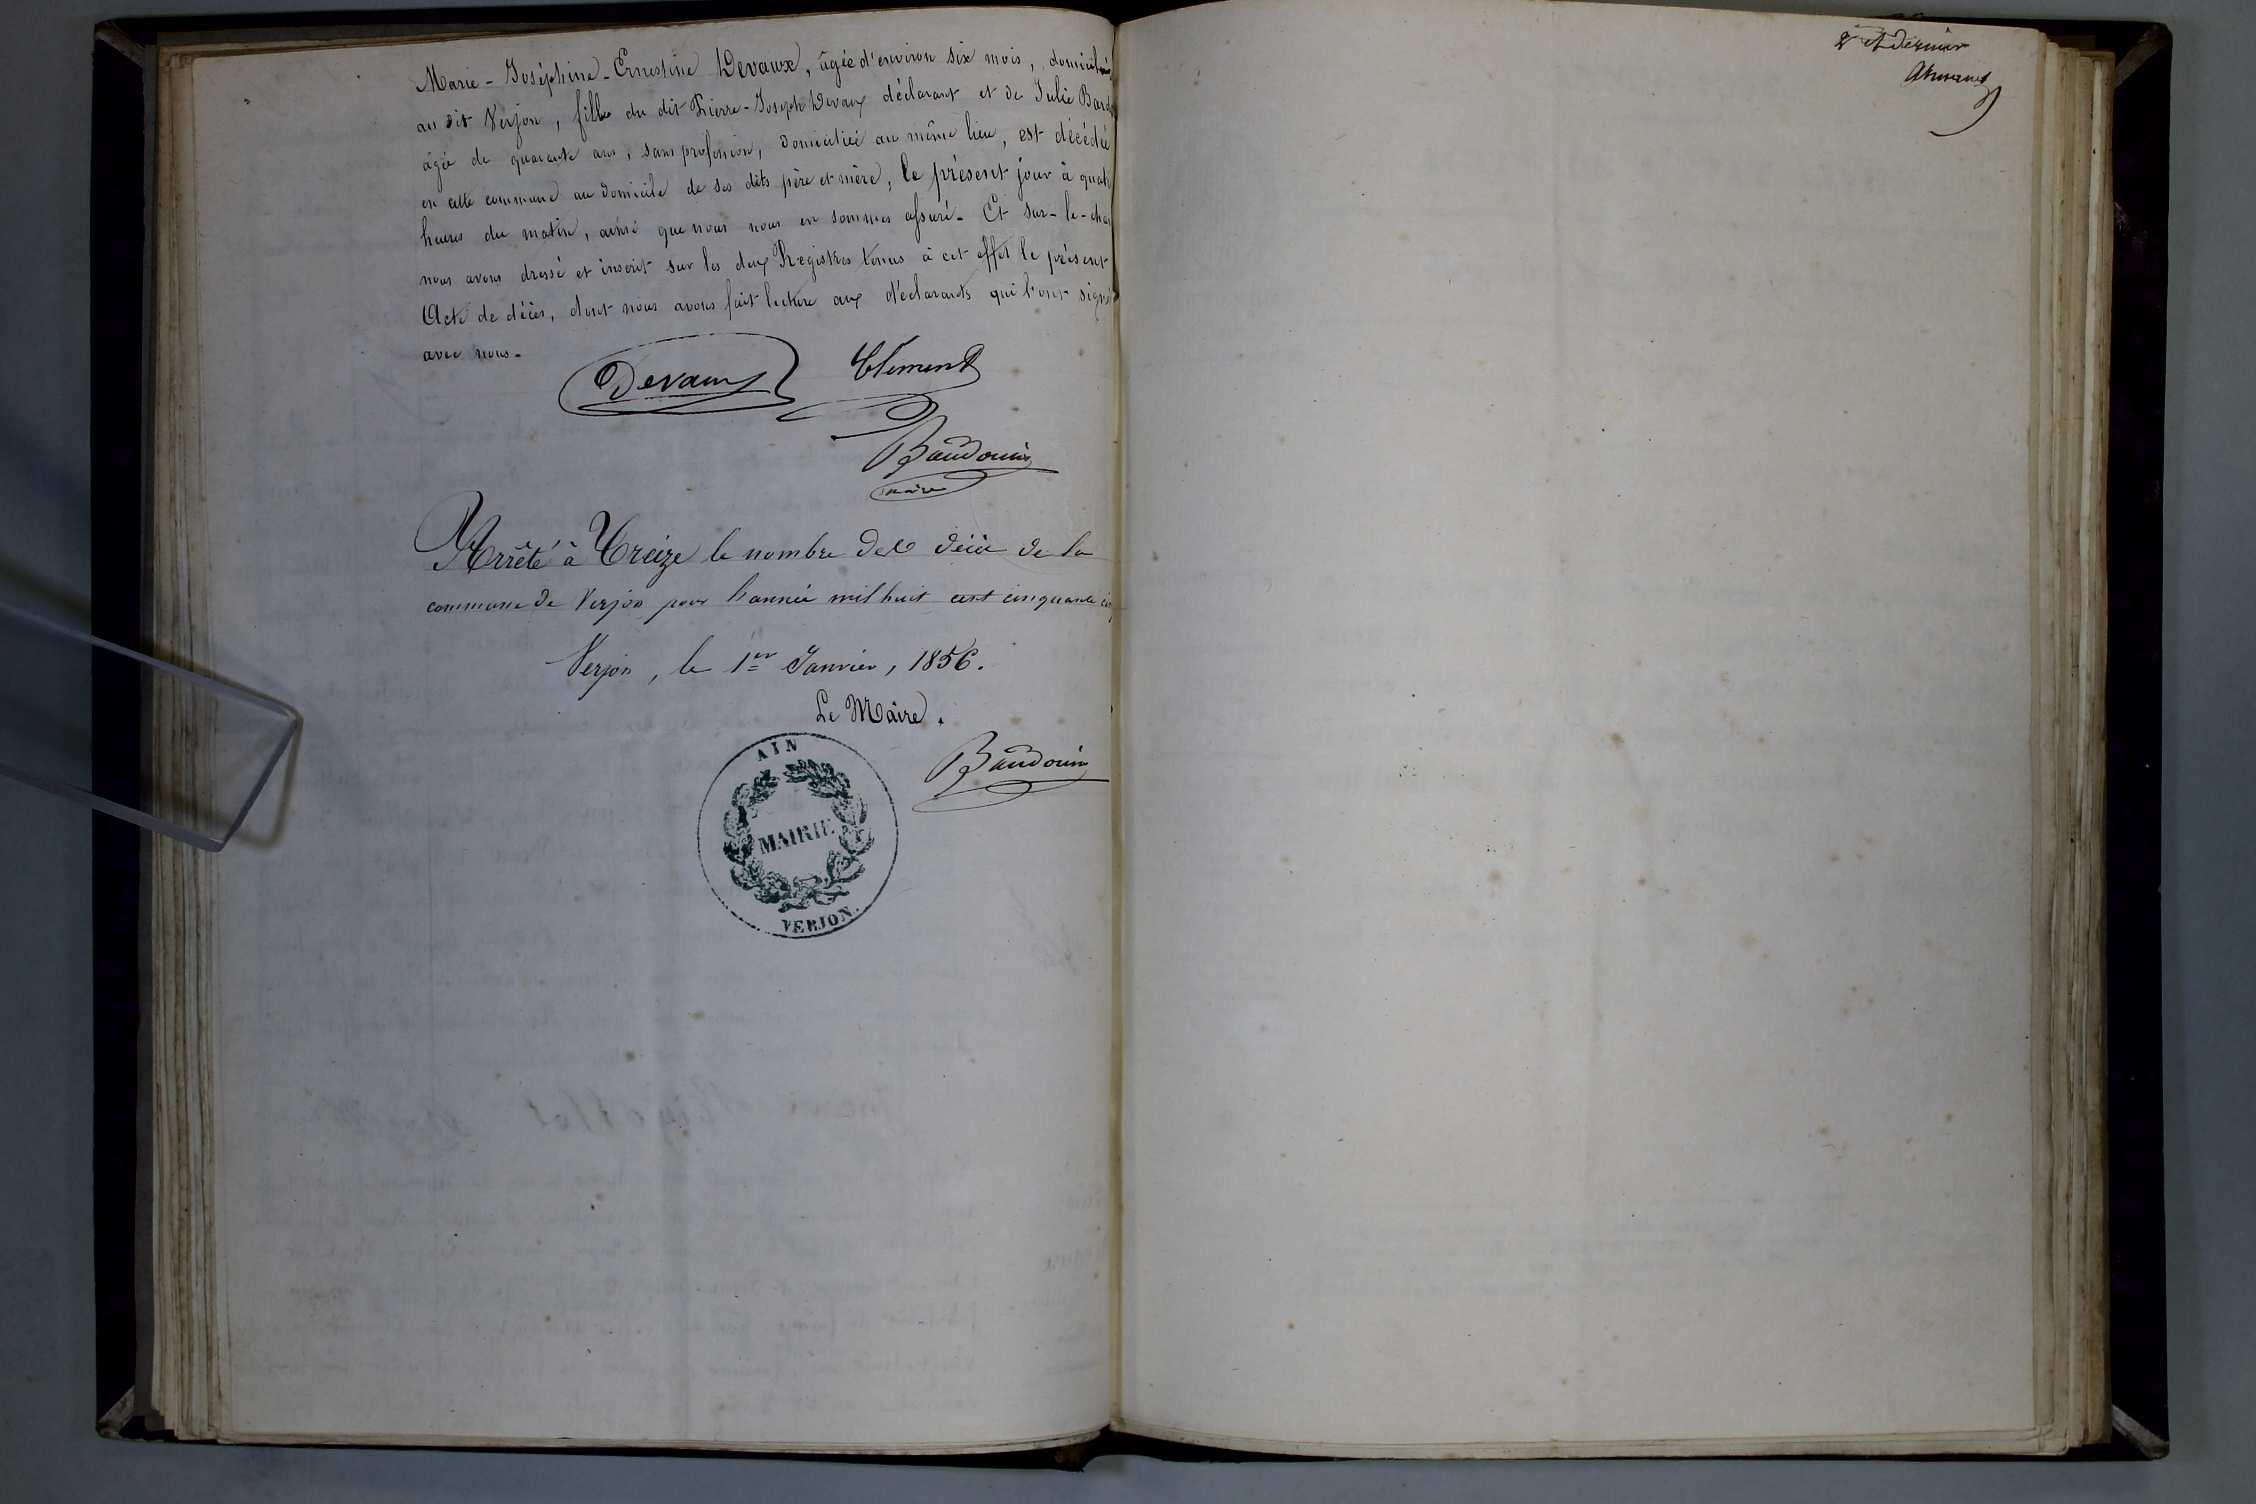 Marie-Joséphine-Ernestine Devaux, âgée d'environ six mois, domiciliée
au dit Verjon, fille du dit Pierre-Joseph Devaux déclarant et de Julie
âgée de quarante ans, sans profession, domiciliée au même lieu, est décédée
en cette commune au domicile de ses dits père et mère, le présent jour à quatr
heures du matin, ainsi que nous nous en sommes assuré. Et sur-le-cham
nous avons dressé et inscrit sur les deux Registres tenus à cet effet le présent
Acte de décès, dont nous avons fait lecture aux déclarants qui l'ont signé
avec nous.
Devaux Clément
Baudouin
maire
Arrêté à Treize le nombre des décès de la
commune de Verjon pour l'année mil huit cent cinquante cinq
Verjon, le 1er Janvier, 1856.
Le Maire.
Baudouin
AIN
MAIRIE
VERJON.
2e et dernier